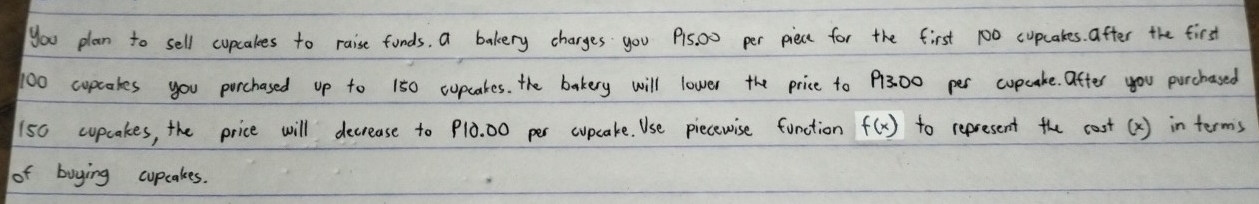 You plan to sell cupcakes to raise funds. A bakery charges you P15.00 per piece for the first 100 cupcakes. After the first
100 cupcakes you purchased up to 150 cupcakes. the bakery will lower the price to P13.00 per cupcake. After you purchased
150 cupcakes, the price will decrease to P10.00 per cupcake. Use piecewise function f(x) to represent the cost (x) in terms
of buying cupcakes.